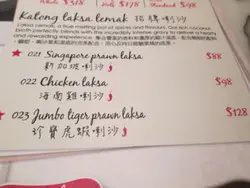 $178
Standard $98
Katong laksa lemak 招牌喇沙
Laksa lemak, a true melting pot of spices and flavours. Our rich coconut
broth perfectly blends with the incredibly intense gravy to deliver a hearty
and rewarding experience.
021 Singapore prawn laksa $88
新加坡喇沙
022 Chicken laksa $98
海南雞喇沙
023 Jumbo tiger prawn laksa $128
珍寶虎蝦喇沙